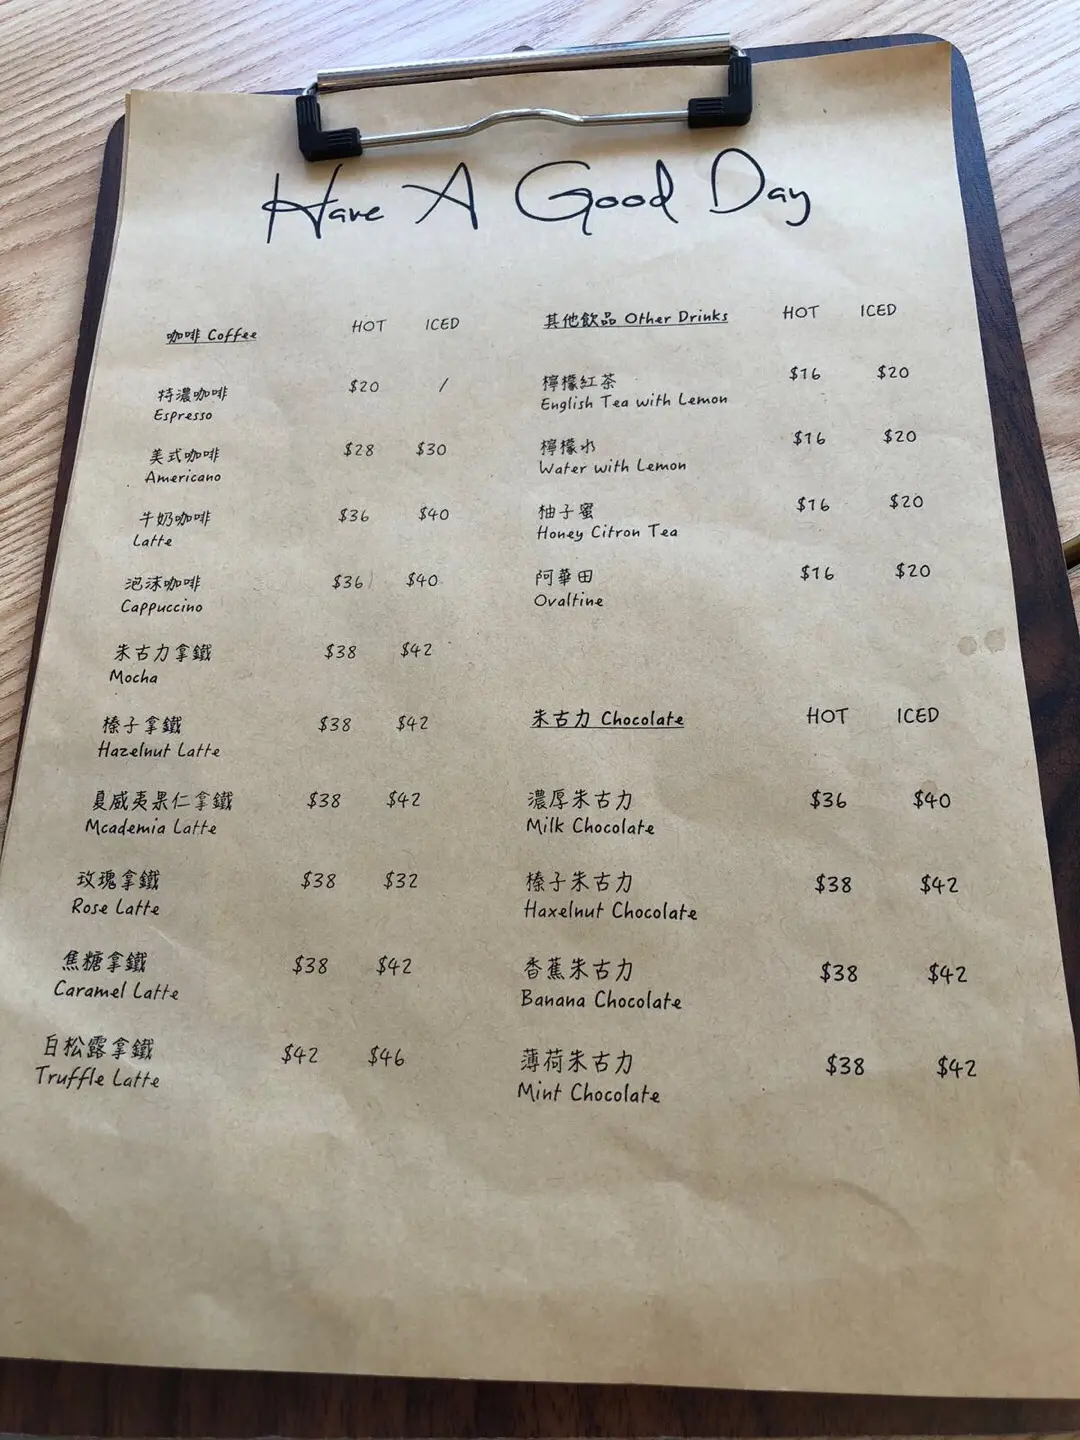 Have A Good Day
咖啡 Coffee HOT ICED
特濃咖啡 $20 /
Espresso
美式咖啡 $28 $30
Americano
牛奶咖啡 $36 $40
Latte
泡沫咖啡 $36 $40
Cappuccino
朱古力拿鐵 $38 $42
Mocha
榛子拿鐵 $38 $42
Hazelnut Latte
夏威夷果仁拿鐵 $38 $42
Mcademia Latte
玫瑰拿鐵 $38 $32
Rose Latte
焦糖拿鐵 $38 $42
Caramel Latte
白松露拿鐵 $42 $46
Truffle Latte
其他飲品 Other Drinks HOT ICED
檸檬紅茶 $16 $20
English Tea with Lemon
檸檬水 $16 $20
Water with Lemon
柚子蜜 $16 $20
Honey Citron Tea
阿華田 $16 $20
Ovaltine
朱古力 Chocolate HOT ICED
濃厚朱古力 $36 $40
Milk Chocolate
榛子朱古力 $38 $42
Haxelnut Chocolate
香蕉朱古力 $38 $42
Banana Chocolate
薄荷朱古力 $38 $42
Mint Chocolate